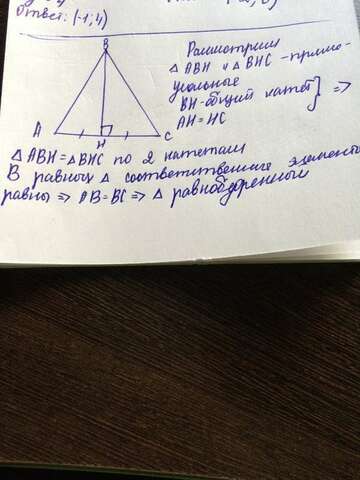 Ответ: (-1; 4)
B
A
H
C
Рассмотрим
△ ABH и △ BHC - прямо-
угольные
BH - общий катет } =>
AH = HC
△ ABH = △ BHC по 2 катетам
В равных △ соответственные элементы
равны => AB = BC => △ равнобедренный